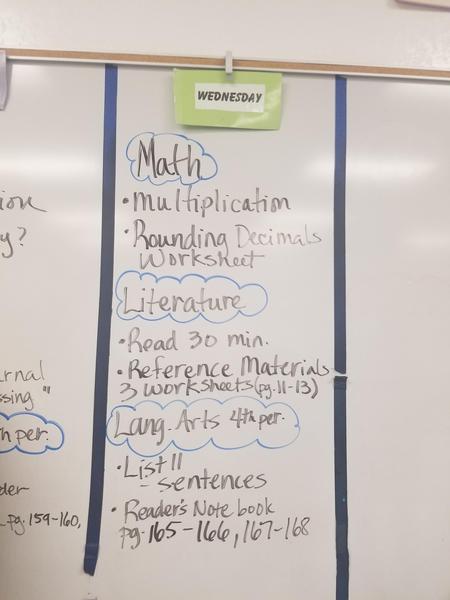 WEDNESDAY
Math
• Multiplication
• Rounding Decimals
Worksheet
Literature
• Read 30 min.
• Reference Materials
3 worksheets (pg. 11-13)
Lang. Arts 4th per.
• List 11
- sentences
• Reader's Notebook
pg. 165-166, 167-168
y?
h per.
pg. 159-160,